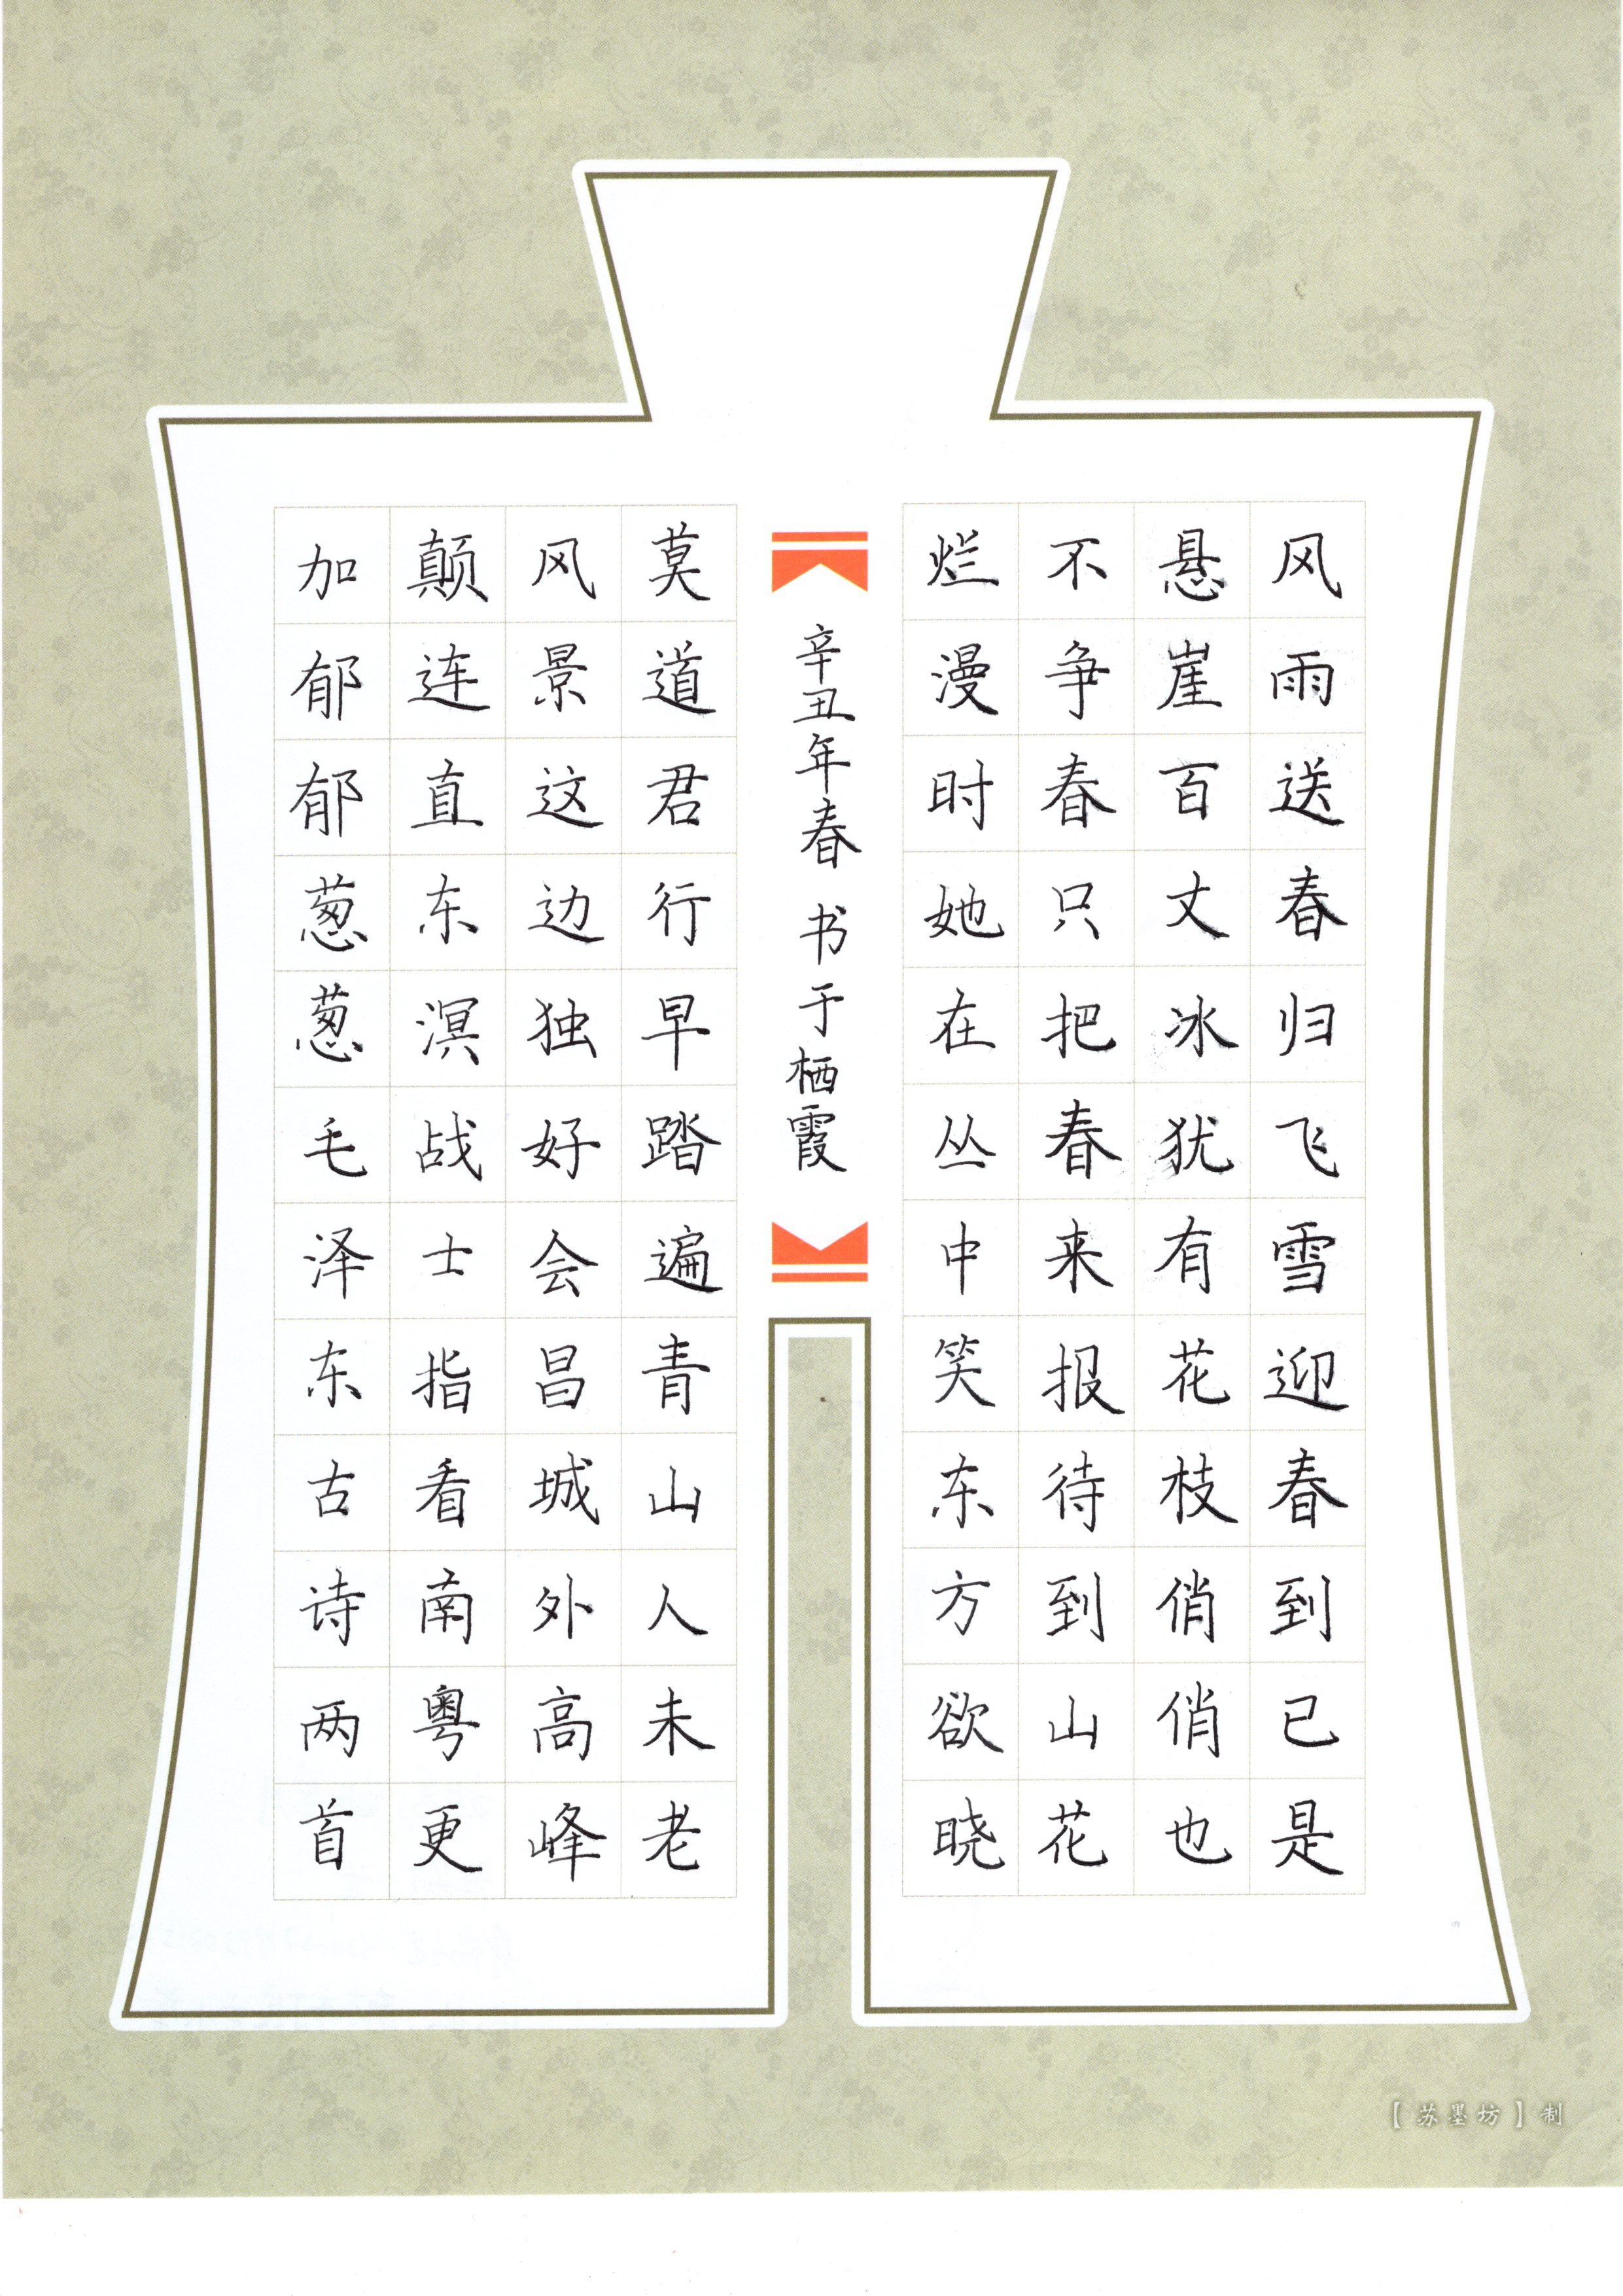 风雨送春归飞雪迎春到已是
悬崖百丈冰犹有花枝俏俏也
不争春只把春来报待到山花
烂漫时她在丛中笑东方欲晓
莫道君行早踏遍青山人未老
风景这边独好会昌城外高峰
颠连直东溟战士指看南粤更
加郁郁葱葱毛泽东古诗两首
辛丑年春 书于栖霞
【苏墨坊】制